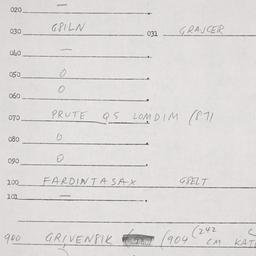 020 —
030 GPILN 031 GRAJCER
040 —
050 0
060 0
070 PRUTE QS LOMDIM (871
080 0
090 0
100 FARDINTASAX GPELT
101 —
900 GRIVENPIK (904 (242 CM KAT